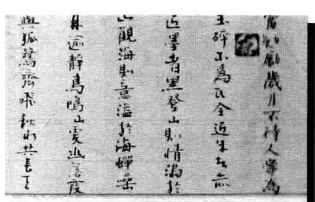 當勉勵歲月不待人寧為
玉碎不為瓦全近朱者赤
近墨者黑登山則情滿於
山觀海則意溢於海蟬噪
林逾靜鳥鳴山更幽落霞
與孤鶩齊飛秋水共長天